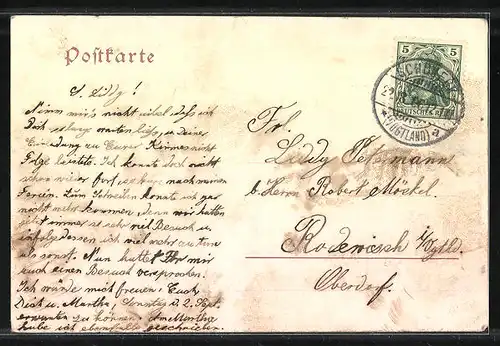 Postkarte
L. Liddy!
Nimm mir's nicht übel daß ich
Dich so lange warten ließ u. deiner
Einladung zu Eurer Kirmes nicht
Folge leistete. Ich konnte doch nicht
schon wieder fort, es kurz nach meinen
Ferien. Zum Schreiben konnte ich gar
nicht mehr kommen, denn wir hatten
jetzt immer so sehr viel Besuch u.
infolgedessen ich viel mehr zu tun
als sonst. Nun hattet Ihr mir
auch einen Besuch versprochen.
Ich würde mich freuen, Euch
Dich u. Martha, Sonntag d. 2. Sept.
erwarten zu können. An Martha
habe ich ebenfalls geschrieben.
5 5
DEUTSCHES REICH
(VOGTLAND) a
Frl.
Liddy Petermann
b. Herrn Robert Möckel.
Rodewisch i/Vgtld.
Oberdorf.